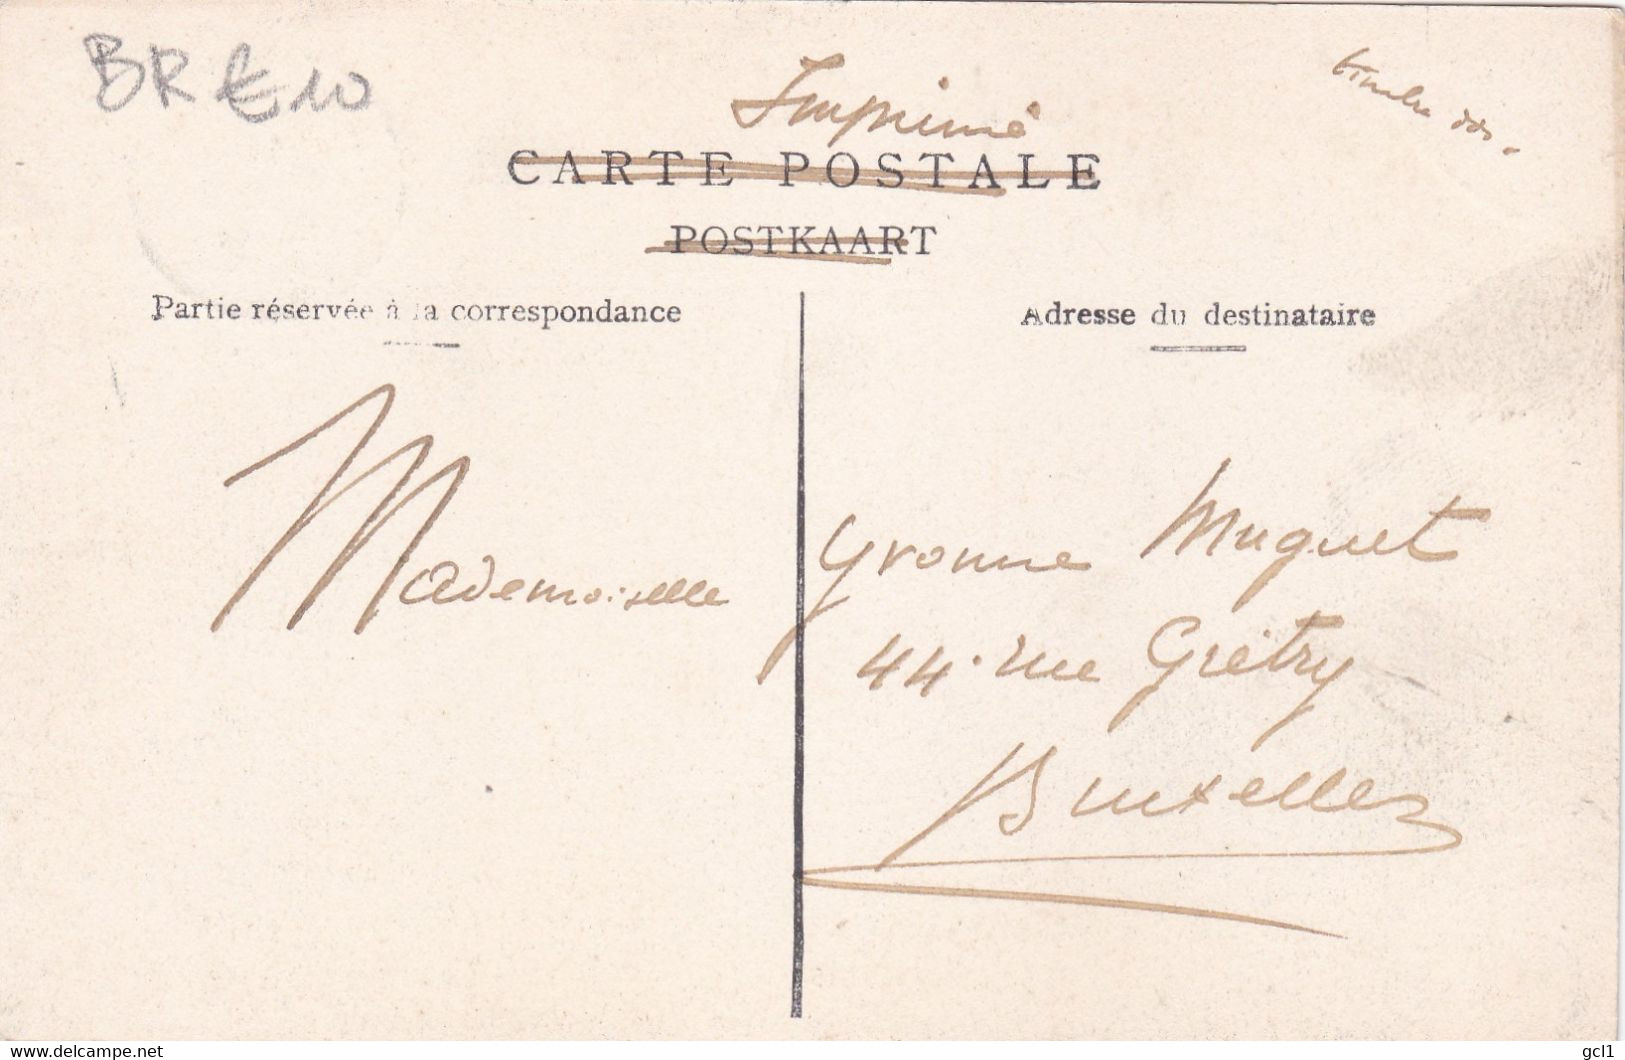 BR € 10
Imprimé
timbre dos.
CARTE POSTALE
POSTKAART
Partie réservée à la correspondance
Adresse du destinataire
Mademoiselle
Yvonne Muguet
44. rue Grétry
Bruxelles
https://www.delcampe.net
gcl1